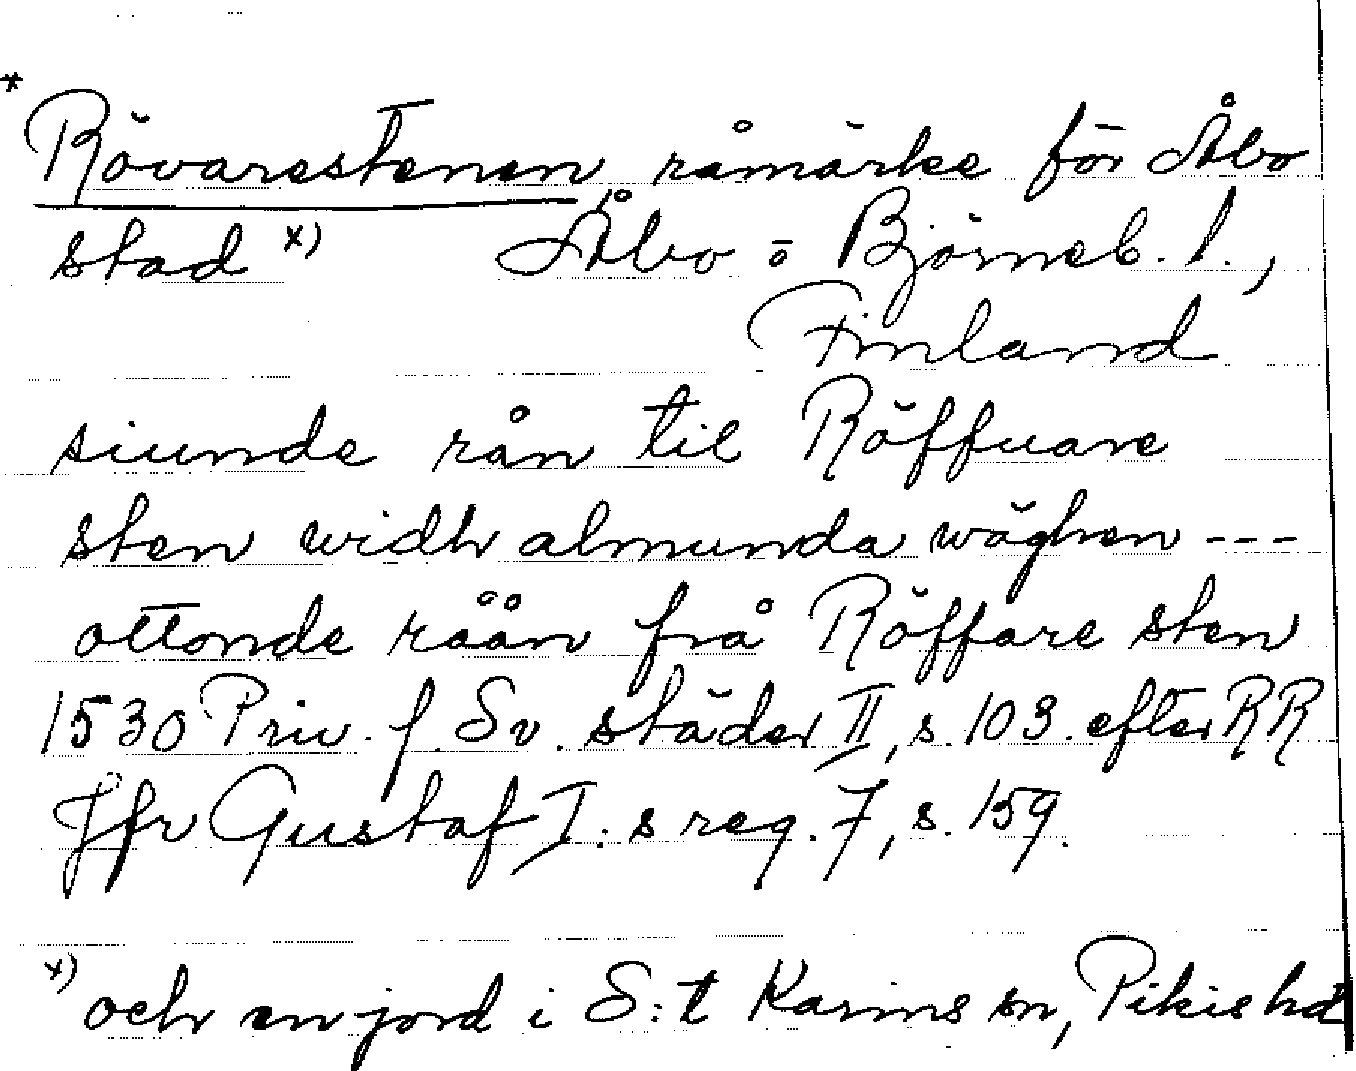 * Rövarestenen, råmärke för Åbo
stad x) Åbo o Björneb. l.,
Finland
siunde rån til Röffuare
sten widh almunda wäghen ---
ottonde råån frå Röffare sten
1530 Priv. f. Sv. städer II, s. 103. efter RR
Jfr Gustaf I. s reg. 7, s. 159.
x) och en jord i S:t Karins sn, Pikis hd